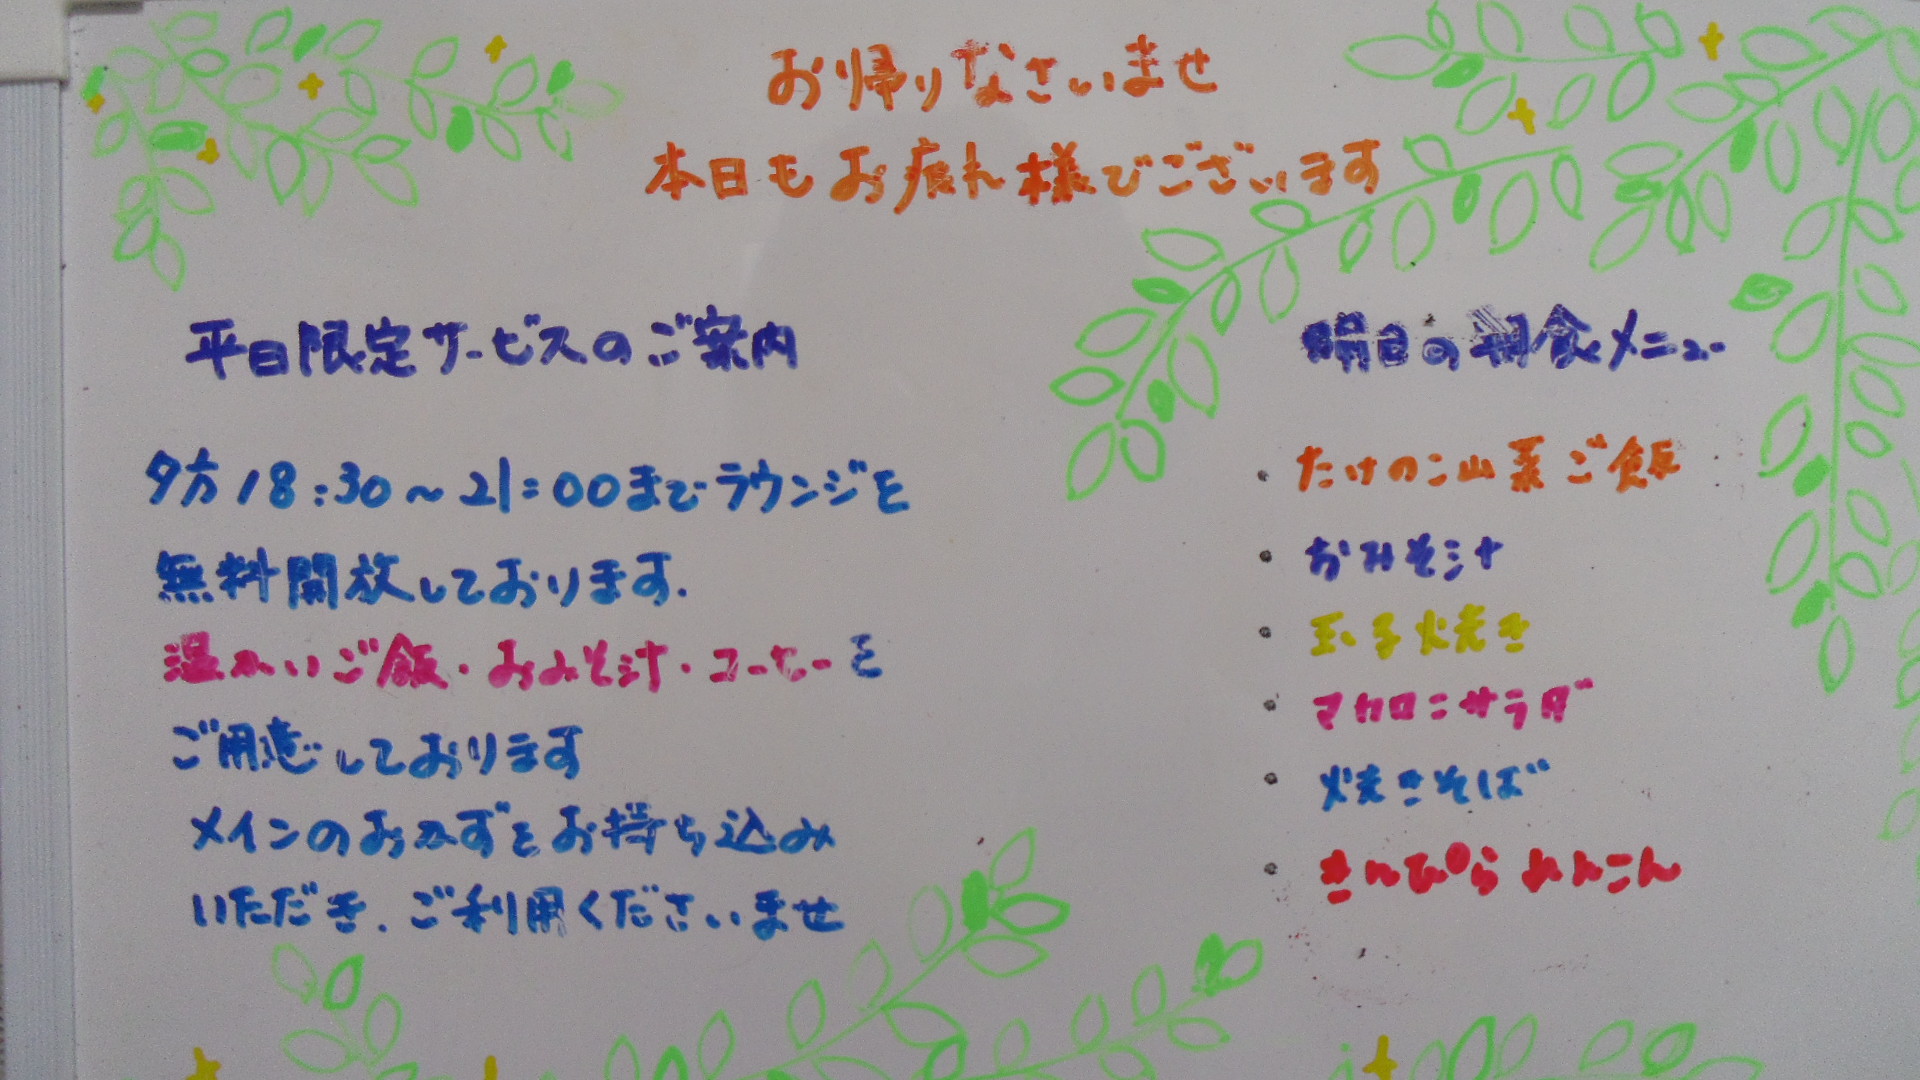 お帰りなさいませ
本日もお疲れ様でございます
平日限定サービスのご案内
夕方18:30～21:00までラウンジを
無料開放しております.
温かいご飯・おみそ汁・コーヒーを
ご用意しております
メインのおかずをお持ち込み
いただき.ご利用くださいませ
明日の朝食メニュー
・たけのこ山菜ご飯
・おみそ汁
・玉子焼き
・マカロニサラダ
・焼きそば
・きんぴられんこん